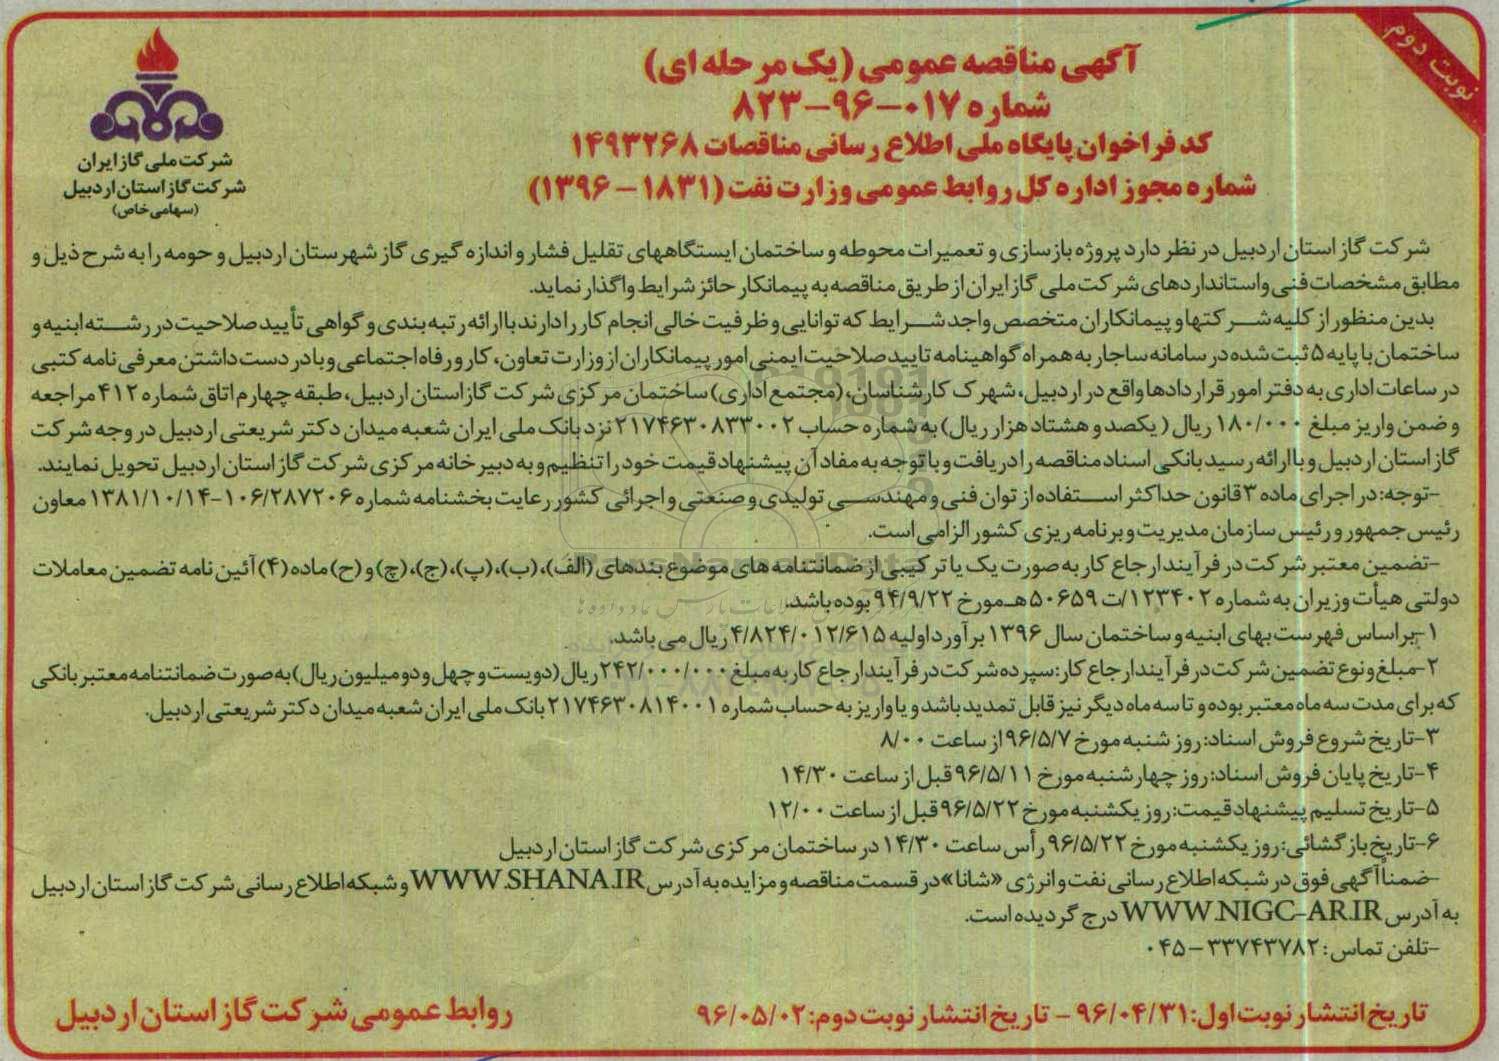 نوبت دوم
آگهی مناقصه عمومی (یک مرحله ای)
شماره ۰۱۷-۹۶-۸۲۳
کد فراخوان پایگاه ملی اطلاع رسانی مناقصات ۱۴۹۳۲۶۸
شماره مجوز اداره کل روابط عمومی وزارت نفت (۱۸۳۱-۱۳۹۶)
شرکت ملی گاز ایران
شرکت گاز استان اردبیل
(سهامی خاص)
شرکت گاز استان اردبیل در نظر دارد پروژه بازسازی و تعمیرات محوطه و ساختمان ایستگاههای تقلیل فشار و اندازه گیری گاز شهرستان اردبیل و حومه را به شرح ذیل و
مطابق مشخصات فنی واستانداردهای شرکت ملی گاز ایران از طریق مناقصه به پیمانکار حائز شرایط واگذار نماید.
بدین منظور از کلیه شرکتها و پیمانکاران متخصص واجد شرایط که توانایی و ظرفیت خالی انجام کار را دارند با ارائه رتبه بندی و گواهی تأیید صلاحیت در رشته ابنیه و
ساختمان با پایه ۵ ثبت شده در سامانه ساجار به همراه گواهینامه تایید صلاحیت ایمنی امور پیمانکاران از وزارت تعاون، کار و رفاه اجتماعی و با در دست داشتن معرفی نامه کتبی
در ساعات اداری به دفتر امور قراردادها واقع در اردبیل، شهرک کارشناسان، (مجتمع اداری) ساختمان مرکزی شرکت گاز استان اردبیل، طبقه چهارم اتاق شماره ۴۱۲ مراجعه
و ضمن واریز مبلغ ۱۸۰/۰۰۰ ریال (یکصد و هشتاد هزار ریال) به شماره حساب ۲۱۷۴۶۳۰۸۳۳۰۰۲ نزد بانک ملی ایران شعبه میدان دکتر شریعتی اردبیل در وجه شرکت
گاز استان اردبیل و با ارائه رسید بانکی اسناد مناقصه را دریافت و با توجه به مفاد آن پیشنهاد قیمت خود را تنظیم و به دبیرخانه مرکزی شرکت گاز استان اردبیل تحویل نمایند.
-توجه: در اجرای ماده ۳ قانون حداکثر استفاده از توان فنی و مهندسی تولیدی و صنعتی و اجرائی کشور رعایت بخشنامه شماره ۱۰۶/۲۸۷۲۰۶-۱۳۸۱/۱۰/۱۴ معاون
رئیس جمهور و رئیس سازمان مدیریت و برنامه ریزی کشور الزامی است.
-تضمین معتبر شرکت در فرآیند ارجاع کار به صورت یک یا ترکیبی از ضمانتنامه های موضوع بندهای (الف)، (ب)، (پ)، (ج)، (چ) و (ح) ماده (۴) آئین نامه تضمین معاملات
دولتی هیأت وزیران به شماره ۱۲۳۴۰۲/ت ۵۰۶۵۹ هـ مورخ ۹۴/۹/۲۲ بوده باشد.
۱-براساس فهرست بهای ابنیه و ساختمان سال ۱۳۹۶ برآورد اولیه ۴/۸۲۴/۰۱۲/۶۱۵ ریال می باشد.
۲-مبلغ و نوع تضمین شرکت در فرآیند ارجاع کار: سپرده شرکت در فرآیند ارجاع کار به مبلغ ۲۴۲/۰۰۰/۰۰۰ ریال (دویست و چهل و دو میلیون ریال) به صورت ضمانتنامه معتبر بانکی
که برای مدت سه ماه معتبر بوده و تا سه ماه دیگر نیز قابل تمدید باشد و یا واریز به حساب شماره ۲۱۷۴۶۳۰۸۱۴۰۰۱ بانک ملی ایران شعبه میدان دکتر شریعتی اردبیل.
۳-تاریخ شروع فروش اسناد: روز شنبه مورخ ۹۶/۵/۷ از ساعت ۸/۰۰
۴-تاریخ پایان فروش اسناد: روز چهارشنبه مورخ ۹۶/۵/۱۱ قبل از ساعت ۱۴/۳۰
۵-تاریخ تسلیم پیشنهاد قیمت: روز یکشنبه مورخ ۹۶/۵/۲۲ قبل از ساعت ۱۲/۰۰
۶-تاریخ بازگشائی: روز یکشنبه مورخ ۹۶/۵/۲۲ رأس ساعت ۱۴/۳۰ در ساختمان مرکزی شرکت گاز استان اردبیل
-ضمناً آگهی فوق در شبکه اطلاع رسانی نفت و انرژی «شانا» در قسمت مناقصه و مزایده به آدرس WWW.SHANA.IR و شبکه اطلاع رسانی شرکت گاز استان اردبیل
به آدرس WWW.NIGC-AR.IR درج گردیده است.
-تلفن تماس: ۳۳۷۴۳۷۸۲-۰۴۵
تاریخ انتشار نوبت اول: ۹۶/۰۴/۳۱ - تاریخ انتشار نوبت دوم: ۹۶/۰۵/۰۲
روابط عمومی شرکت گاز استان اردبیل